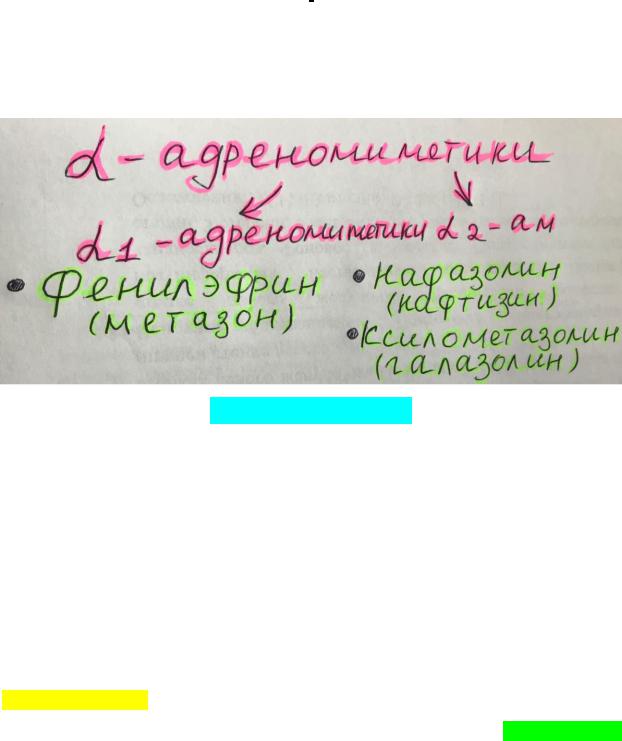 α - адреномиметики
α1 - адреномиметики α2 - ам
• Фенилэфрин
(метазон)
• Нафазолин
(нафтизин)
• Ксилометазолин
(галазолин)